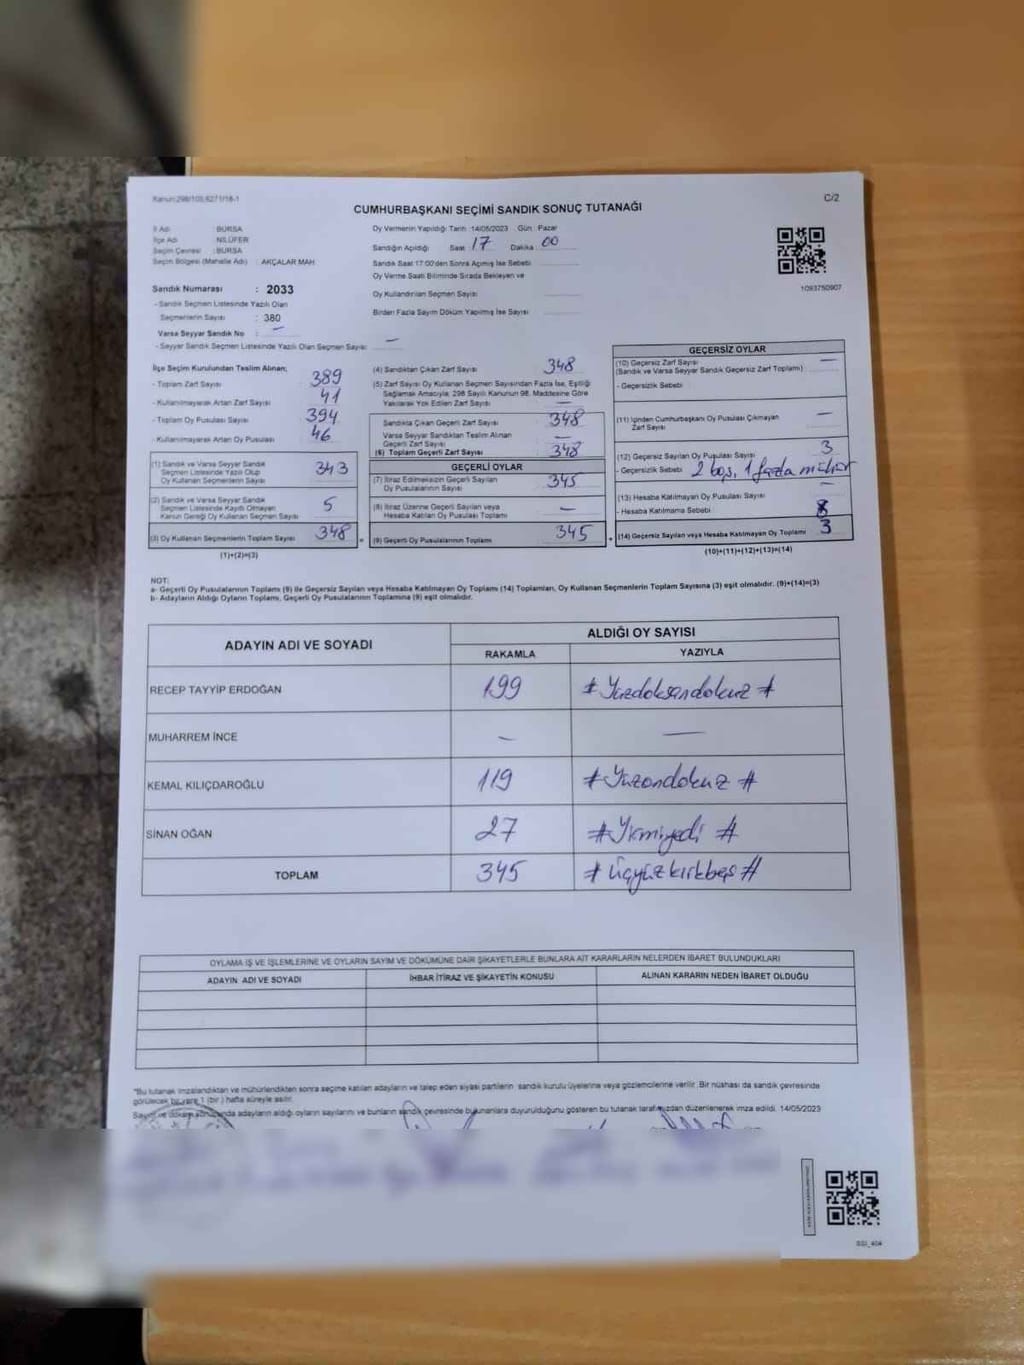 Kanun:298/103,6271/18-1
C/2
CUMHURBAŞKANI SEÇİMİ SANDIK SONUÇ TUTANAĞI
İl Adı : BURSA
İlçe Adı : NİLÜFER
Seçim Çevresi : BURSA
Seçim Bölgesi (Mahalle Adı) : AKÇALAR MAH.
Sandık Numarası : 2033
- Sandık Seçmen Listesinde Yazılı Olan
Seçmenlerin Sayısı : 380
Varsa Seyyar Sandık No : –
- Seyyar Sandık Seçmen Listesinde Yazılı Olan Seçmen Sayısı : –
Oy Vermenin Yapıldığı Tarih :14/05/2023 Gün : Pazar
Sandığın Açıldığı Saat 17 Dakika 00
Sandık Saat 17:00'den Sonra Açılmış İse Sebebi
Oy Verme Saati Bitiminde Sırada Bekleyen ve
Oy Kullandırılan Seçmen Sayısı
Birden Fazla Sayım Döküm Yapılmış İse Sayısı
1093750907
İlçe Seçim Kurulundan Teslim Alınan;
- Toplam Zarf Sayısı : 389
- Kullanılmayarak Artan Zarf Sayısı : 41
- Toplam Oy Pusulası : 394
- Kullanılmayarak Artan Oy Pusulası : 46
(1) Sandık ve Varsa Seyyar Sandık
Seçmen Listesinde Yazılı Olup
Oy Kullanan Seçmenlerin Sayısı 343
(2) Sandık ve Varsa Seyyar Sandık
Seçmen Listesinde Kayıtlı Olmayan
Kanun Gereği Oy Kullanan Seçmen Sayısı 5
(3) Oy Kullanan Seçmenlerin Toplam Sayısı 348
(1)+(2)=(3)
(4) Sandıktan Çıkan Zarf Sayısı 348
(5) Zarf Sayısı Oy Kullanan Seçmen Sayısından Fazla İse, Eşitliği
Sağlamak Amacıyla, 298 Sayılı Kanunun 98. Maddesine Göre
Yakılarak Yok Edilen Zarf Sayısı –
Sandıkta Çıkan Geçerli Zarf Sayısı 348
Varsa Seyyar Sandıktan Teslim Alınan
Geçerli Zarf Sayısı –
(6) Toplam Geçerli Zarf Sayısı 348
GEÇERLİ OYLAR
(7) İtiraz Edilmeksizin Geçerli Sayılan
Oy Pusulalarının Sayısı 345
(8) İtiraz Üzerine Geçerli Sayılan veya
Hesaba Katılan Oy Pusulası Toplamı –
(9) Geçerli Oy Pusulalarının Toplamı 345
GEÇERSİZ OYLAR
(10) Geçersiz Zarf Sayısı –
(Sandık ve Varsa Seyyar Sandık Geçersiz Zarf Toplamı)
- Geçersizlik Sebebi
(11) İçinden Cumhurbaşkanı Oy Pusulası Çıkmayan
Zarf Sayısı –
(12) Geçersiz Sayılan Oy Pusulası Sayısı 3
- Geçersizlik Sebebi 2 boş, 1 fazla mühür
(13) Hesaba Katılmayan Oy Pusulası Sayısı –
- Hesaba Katılmama Sebebi
(14) Geçersiz Sayılan veya Hesaba Katılmayan Oy Toplamı 3
(10)+(11)+(12)+(13)=(14)
NOT:
a- Geçerli Oy Pusulalarının Toplamı (9) ile Geçersiz Sayılan veya Hesaba Katılmayan Oy Toplamı (14) Toplamları, Oy Kullanan Seçmenlerin Toplam Sayısına (3) eşit olmalıdır. (9)+(14)=(3)
b- Adayların Aldığı Oyların Toplamı, Geçerli Oy Pusulalarının Toplamına (9) eşit olmalıdır.
ADAYIN ADI VE SOYADI ALDIĞI OY SAYISI
RAKAMLA YAZIYLA
RECEP TAYYİP ERDOĞAN 199 # Yüzdoksandokuz #
MUHARREM İNCE – –
KEMAL KILIÇDAROĞLU 119 # Yüzondokuz #
SİNAN OĞAN 27 # Yirmiyedi #
TOPLAM 345 # Üçyüzkırkbeş #
OYLAMA İŞ VE İŞLEMLERİNE VE OYLARIN SAYIM VE DÖKÜMÜNE DAİR ŞİKAYETLERLE BUNLARA AİT KARARLARIN NELERDEN İBARET BULUNDUKLARI
ADAYIN ADI VE SOYADI İHBAR İTİRAZ VE ŞİKAYETİN KONUSU ALINAN KARARIN NEDEN İBARET OLDUĞU
*Bu tutanak imzalandıktan ve mühürlendikten sonra seçime katılan adayların ve talep eden siyasi partilerin sandık kurulu üyelerine veya gözlemcilerine verilir. Bir nüshası da sandık çevresinde
görülecek bir yere 1 (bir) hafta süreyle asılır.
Sayım ve döküm sonucunda adayların aldığı oyların sayılarını ve bunların sandık çevresinde bulunanlara duyurulduğunu gösteren bu tutanak tarafımızdan düzenlenerek imza edildi. 14/05/2023